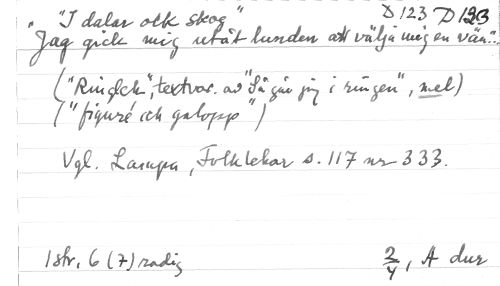 "I dalar och skog" D 123 D 123
"Jag gick mig utåt lunden att välja mig en vän"...
("Ringlek", textvar. av "Så går jag i ringen", mel)
("figuré och galopp")
Vgl. Lampa, Folklekar s. 117 nr 333.
1 str. 6 (7) radig 2/4, A dur